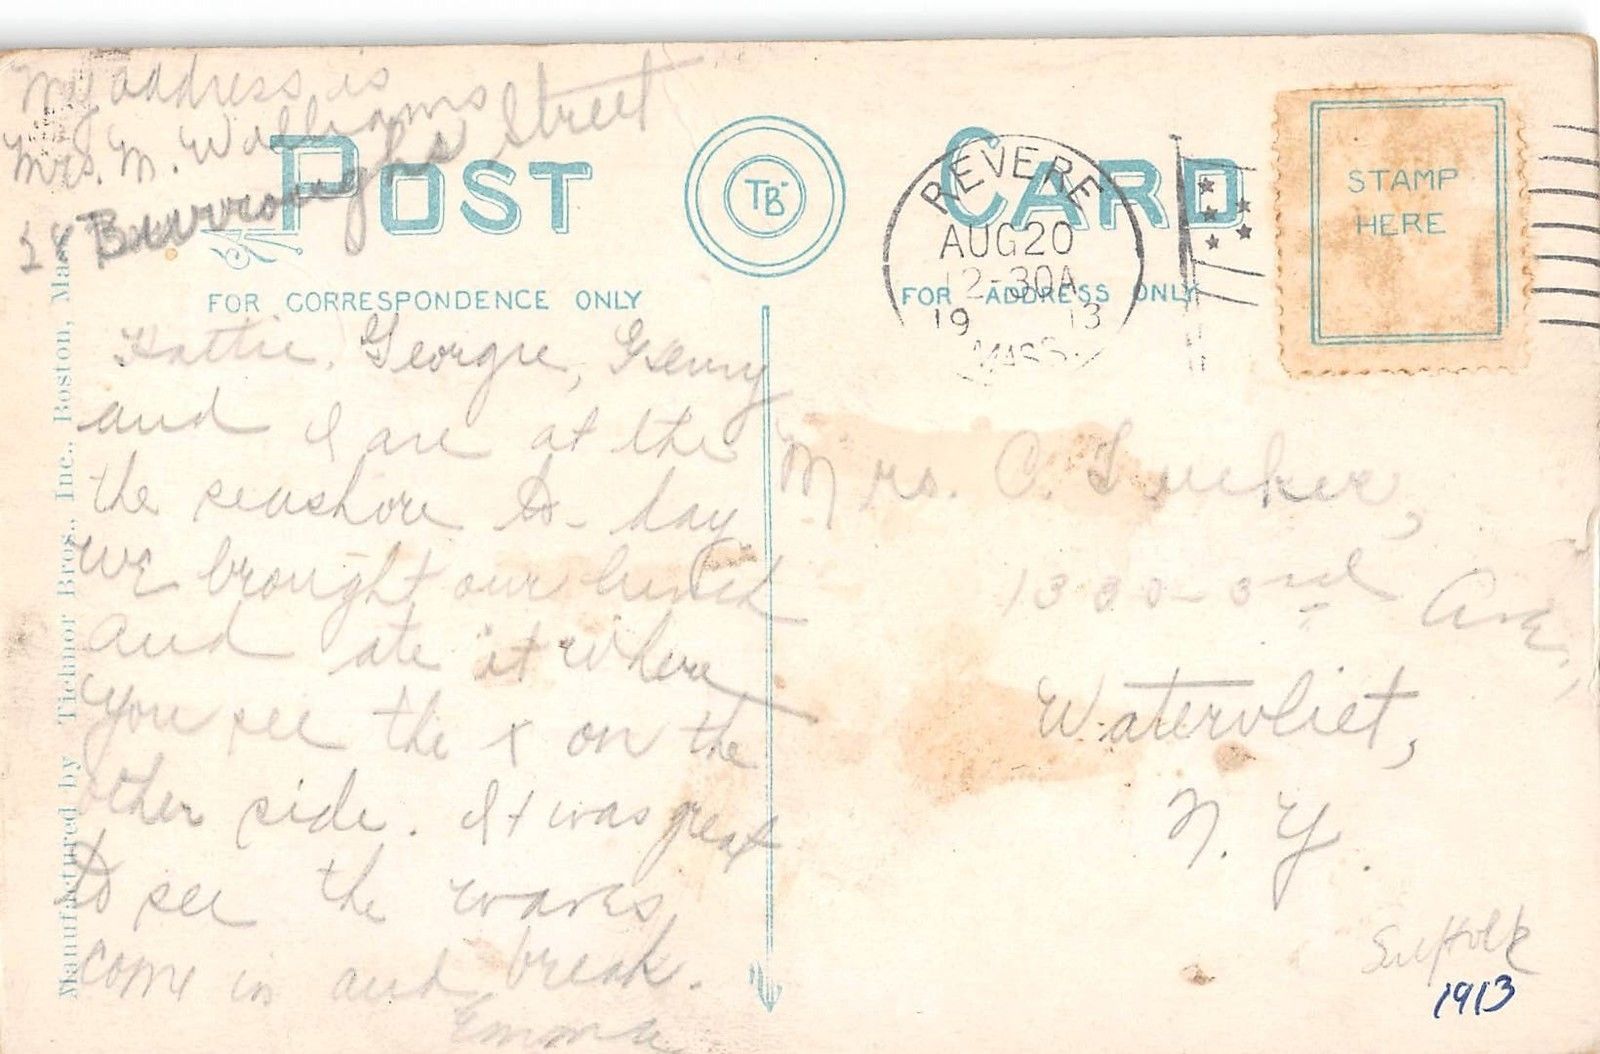 My address is
Mrs. M. Williams
28 Burroughs Street
POST CARD
TB
FOR CORRESPONDENCE ONLY
FOR ADDRESS ONLY
REVERE
AUG 20
12-30A
19 13
MASS.
STAMP
HERE
Manufactured by Tichnor Bros., Inc., Boston, Mass.
Hattie, Georgie, Henry
and I are at the
the seashore to-day
we brought our lunch
and ate it where
you see the x on the
other side. It was great
to see the waves
come in and break.
Emma
Mrs. C. Tucker,
1330-3rd Ave.,
Watervliet,
N. Y.
Suffolk
1913